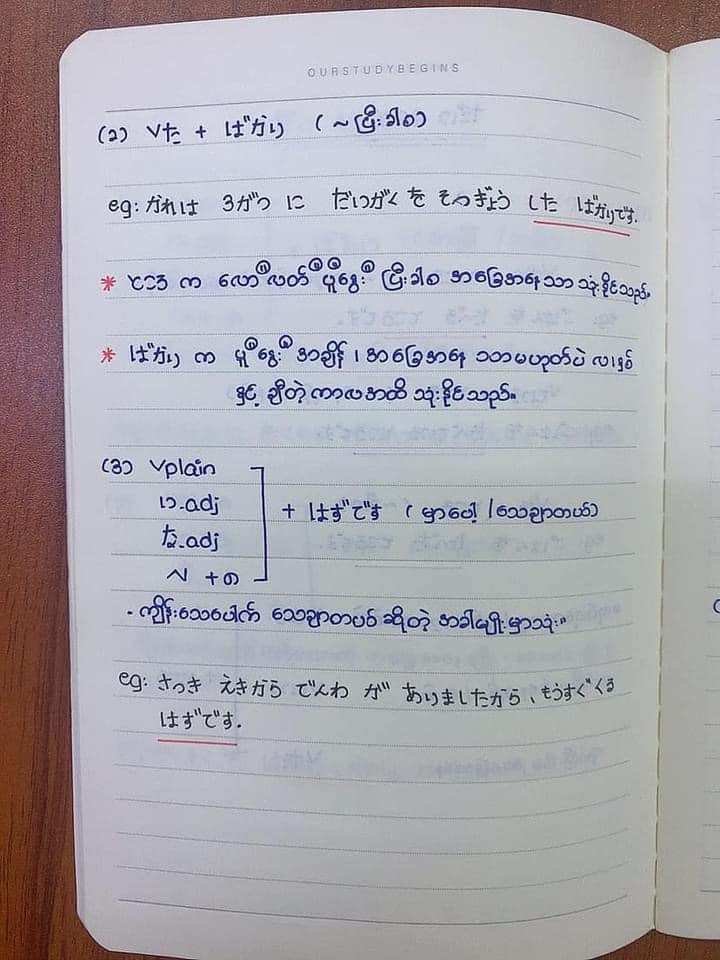 OURSTUDYBEGINS
(၁) Vた + ばかり ( ~ ပြီးခါစ)
eg: かれは 3がつ に だいがく を そつぎょう した ばかりです.
* ところ က လောလောလတ်လတ် ပူပူနွေးနွေး ပြီးခါစ အခြေအနေသာ သုံးနိုင်သည်။
* ばかり က ပူပူနွေးနွေး အချိန် ၊ အခြေအနေ သာမဟုတ်ပဲ လ၊နှစ်
နှင့် ချီတဲ့ ကာလအထိ သုံးနိုင်သည်။
(၃) Vplain
い.adj
な.adj
N +の
+ はずです ( မှာပေါ့ / သေချာတယ်)
- ကျိန်းသေပေါက် သေချာတပ် ဆိုတဲ့ အခါမျိုးမှာသုံး။
eg: さっき えきから でんわ が ありましたから、もうすぐくる
はずです.